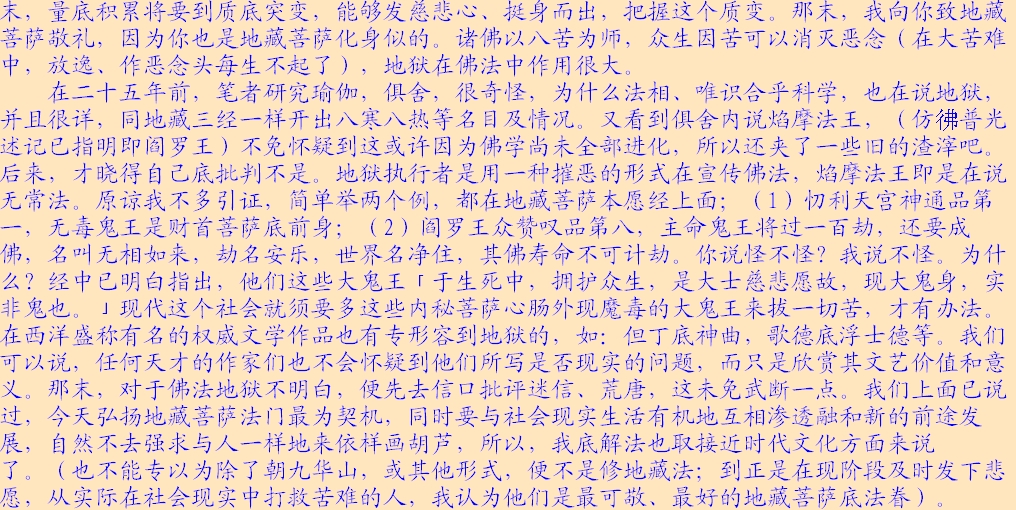 末，量底积累将要到质底突变，能够发慈悲心、挺身而出，把握这个质变。那末，我向你致地藏
菩萨敬礼，因为你也是地藏菩萨化身似的。诸佛以八苦为师，众生因苦可以消灭恶念（在大苦难
中，放逸、作恶念头每生不起了），地狱在佛法中作用很大。
在二十五年前，笔者研究瑜伽，俱舍，很奇怪，为什么法相、唯识合乎科学，也在说地狱，
并且很详，同地藏三经一样开出八寒八热等名目及情况。又看到俱舍内说焰摩法王，（仿彿普光
述记已指明即阎罗王）不免怀疑到这或许因为佛学尚未全部进化，所以还夹了一些旧的渣滓吧。
后来，才晓得自己底批判不是。地狱执行者是用一种摧恶的形式在宣传佛法，焰摩法王即是在说
无常法。原谅我不多引证，简单举两个例，都在地藏菩萨本愿经上面；（１）忉利天宫神通品第
一，无毒鬼王是财首菩萨底前身；（２）阎罗王众赞叹品第八，主命鬼王将过一百劫，还要成
佛，名叫无相如来，劫名安乐，世界名净住，其佛寿命不可计劫。你说怪不怪？我说不怪。为什
么？经中已明白指出，他们这些大鬼王「于生死中，拥护众生，是大士慈悲愿故，现大鬼身，实
非鬼也。」现代这个社会就须要多这些内秘菩萨心肠外现魔毒的大鬼王来拔一切苦，才有办法。
在西洋盛称有名的权威文学作品也有专形容到地狱的，如：但丁底神曲，歌德底浮士德等。我们
可以说，任何天才的作家们也不会怀疑到他们所写是否现实的问题，而只是欣赏其文艺价值和意
义。那末，对于佛法地狱不明白，便先去信口批评迷信、荒唐，这未免武断一点。我们上面已说
过，今天弘扬地藏菩萨法门最为契机，同时要与社会现实生活有机地互相渗透融和新的前途发
展，自然不去强求与人一样地来依样画胡芦，所以，我底解法也取接近时代文化方面来说
了。（也不能专以为除了朝九华山，或其他形式，便不是修地藏法；到正是在现阶段及时发下悲
愿，从实际在社会现实中打救苦难的人，我认为他们是最可敬、最好的地藏菩萨底法眷）。